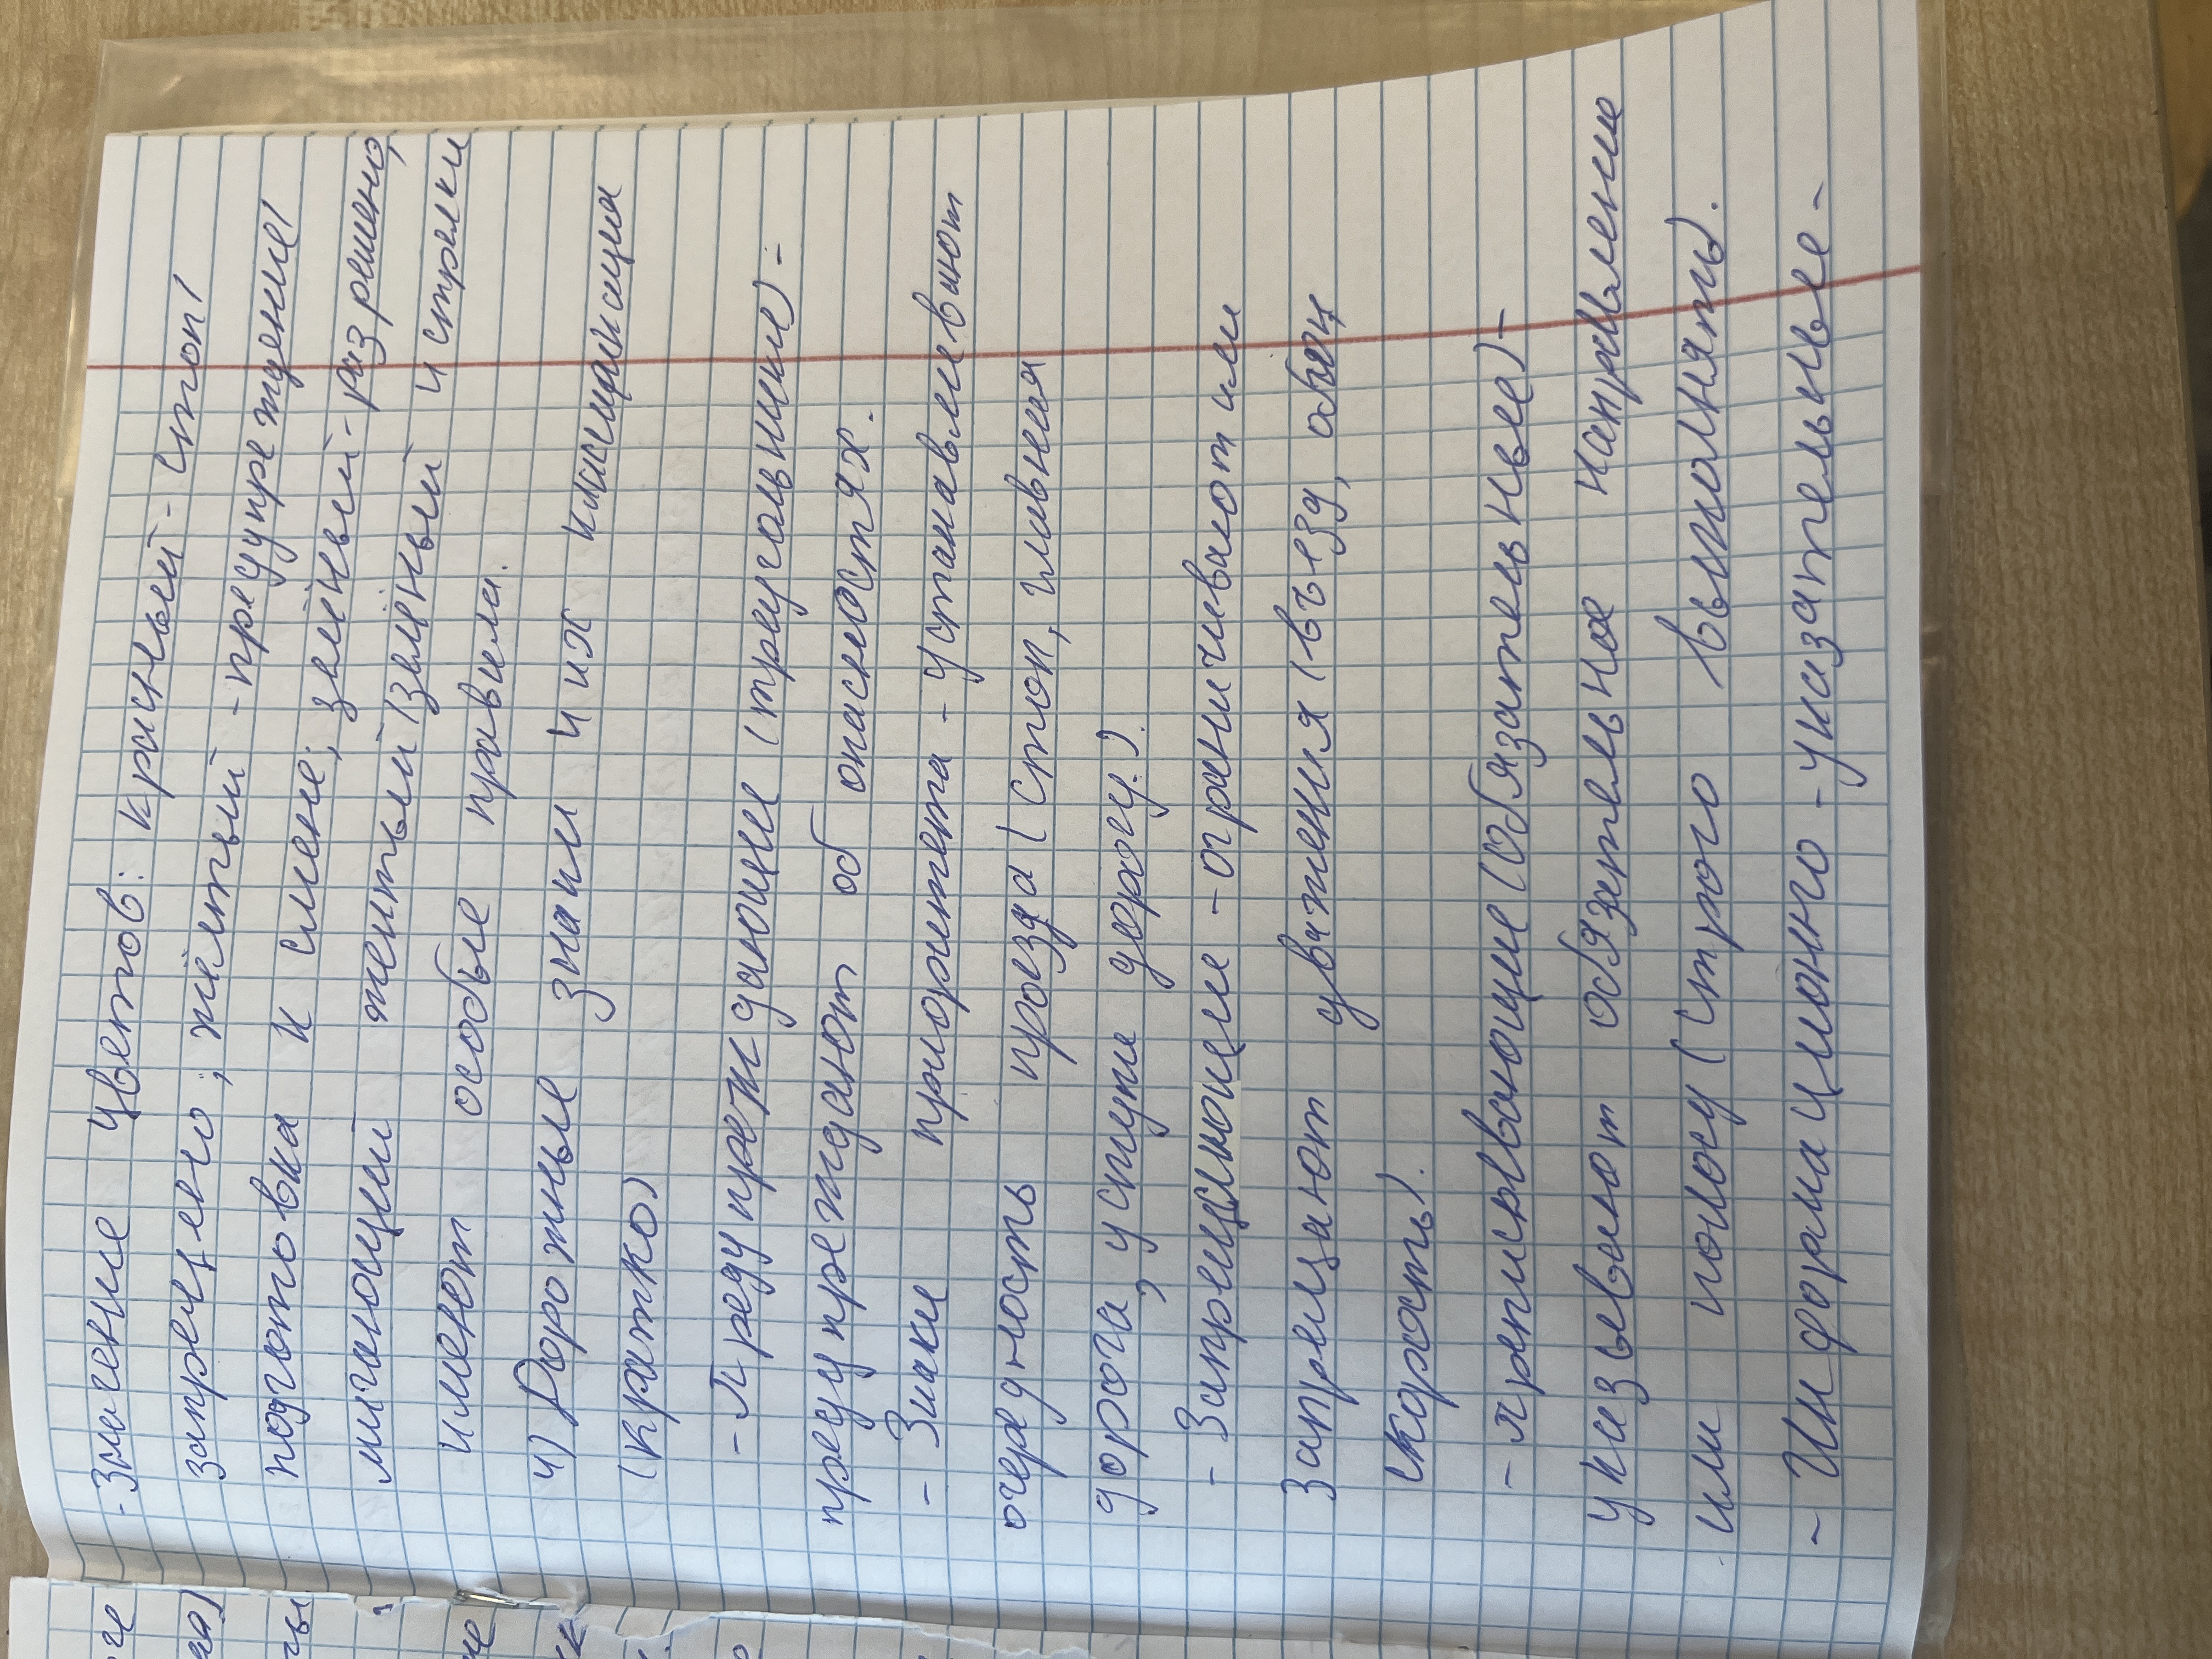 - Значение цветов: красный - стоп/
запрещено; жёлтый - предупреждение/
подготовка к смене; зелёный - разрешено,
мигающий желтый/зелёный и стрелки
имеют особые правила.
4) Дорожные знаки и их классификация
(кратко)
- Предупреждающие (треугольники) -
предупреждают об опасностях.
- Знаки приоритета - устанавливают
очередность проезда (стоп, главная
дорога, уступи дорогу.).
- Запрещающие - ограничивают или
запрещают движения (въезд, обгон
скорость).
- предписывающие (обязательные) -
указывают обязательное направление
или полосу (строго выполнять).
- Информационно - указательные -